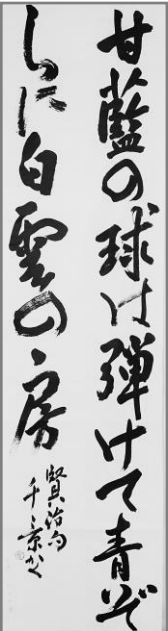 甘藍の球は弾けて青ぞ
らに白雲の房
賢治句
千景かく